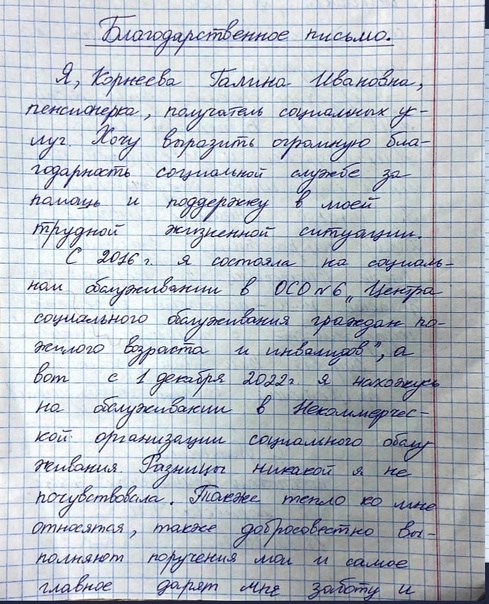 Благодарственное письмо.
Я, Корнеева Галина Ивановна,
пенсионерка, получатель социальных ус-
луг. Хочу выразить огромную бла-
годарность социальной службе за
помощь и поддержку в моей
трудной жизненной ситуации.
С 2016 г. я состояла на социаль-
ном обслуживании в ОСО №6 „Центра
социального обслуживания граждан по-
жилого возраста и инвалидов", а
вот с 1 декабря 2022г. я нахожусь
на обслуживании в Некоммерчес-
кой организации социального обслу-
живания Разницы никакой я не
почувствовала. Также тепло ко мне
относятся, также добросовестно вы-
полняют поручения мои и самое
главное дарят мне заботу и